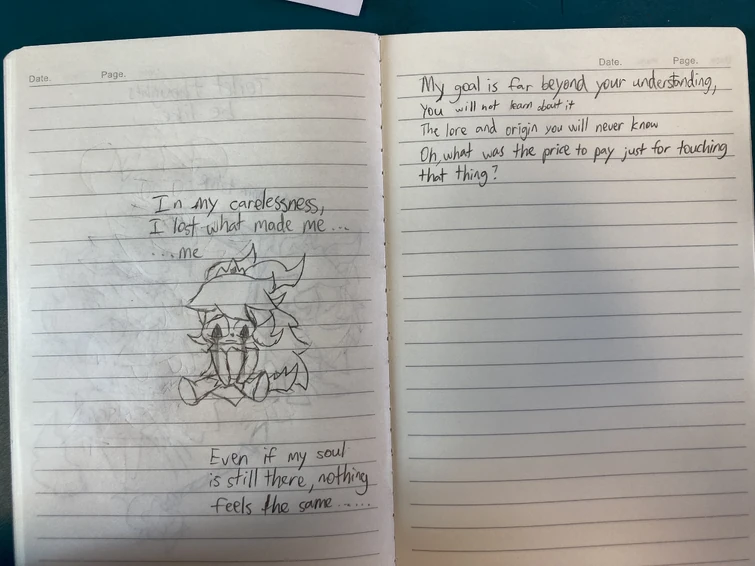 Date.
Page.
In my carelessness,
I lost what made me...
...me
Even if my soul
is still there, nothing
feels the same .....
Date.
Page.
My goal is far beyond your understanding,
You will not learn about it
The lore and origin you will never know
Oh, what was the price to pay just for touching
that thing?